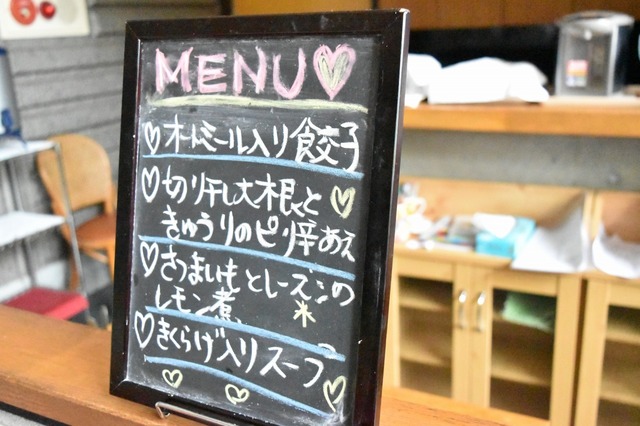 MENU
オートミール入り餃子
切り干し大根と
きゅうりのピリ辛あえ
さつまいもとレーズンの
レモン煮
きくらげ入りスープ